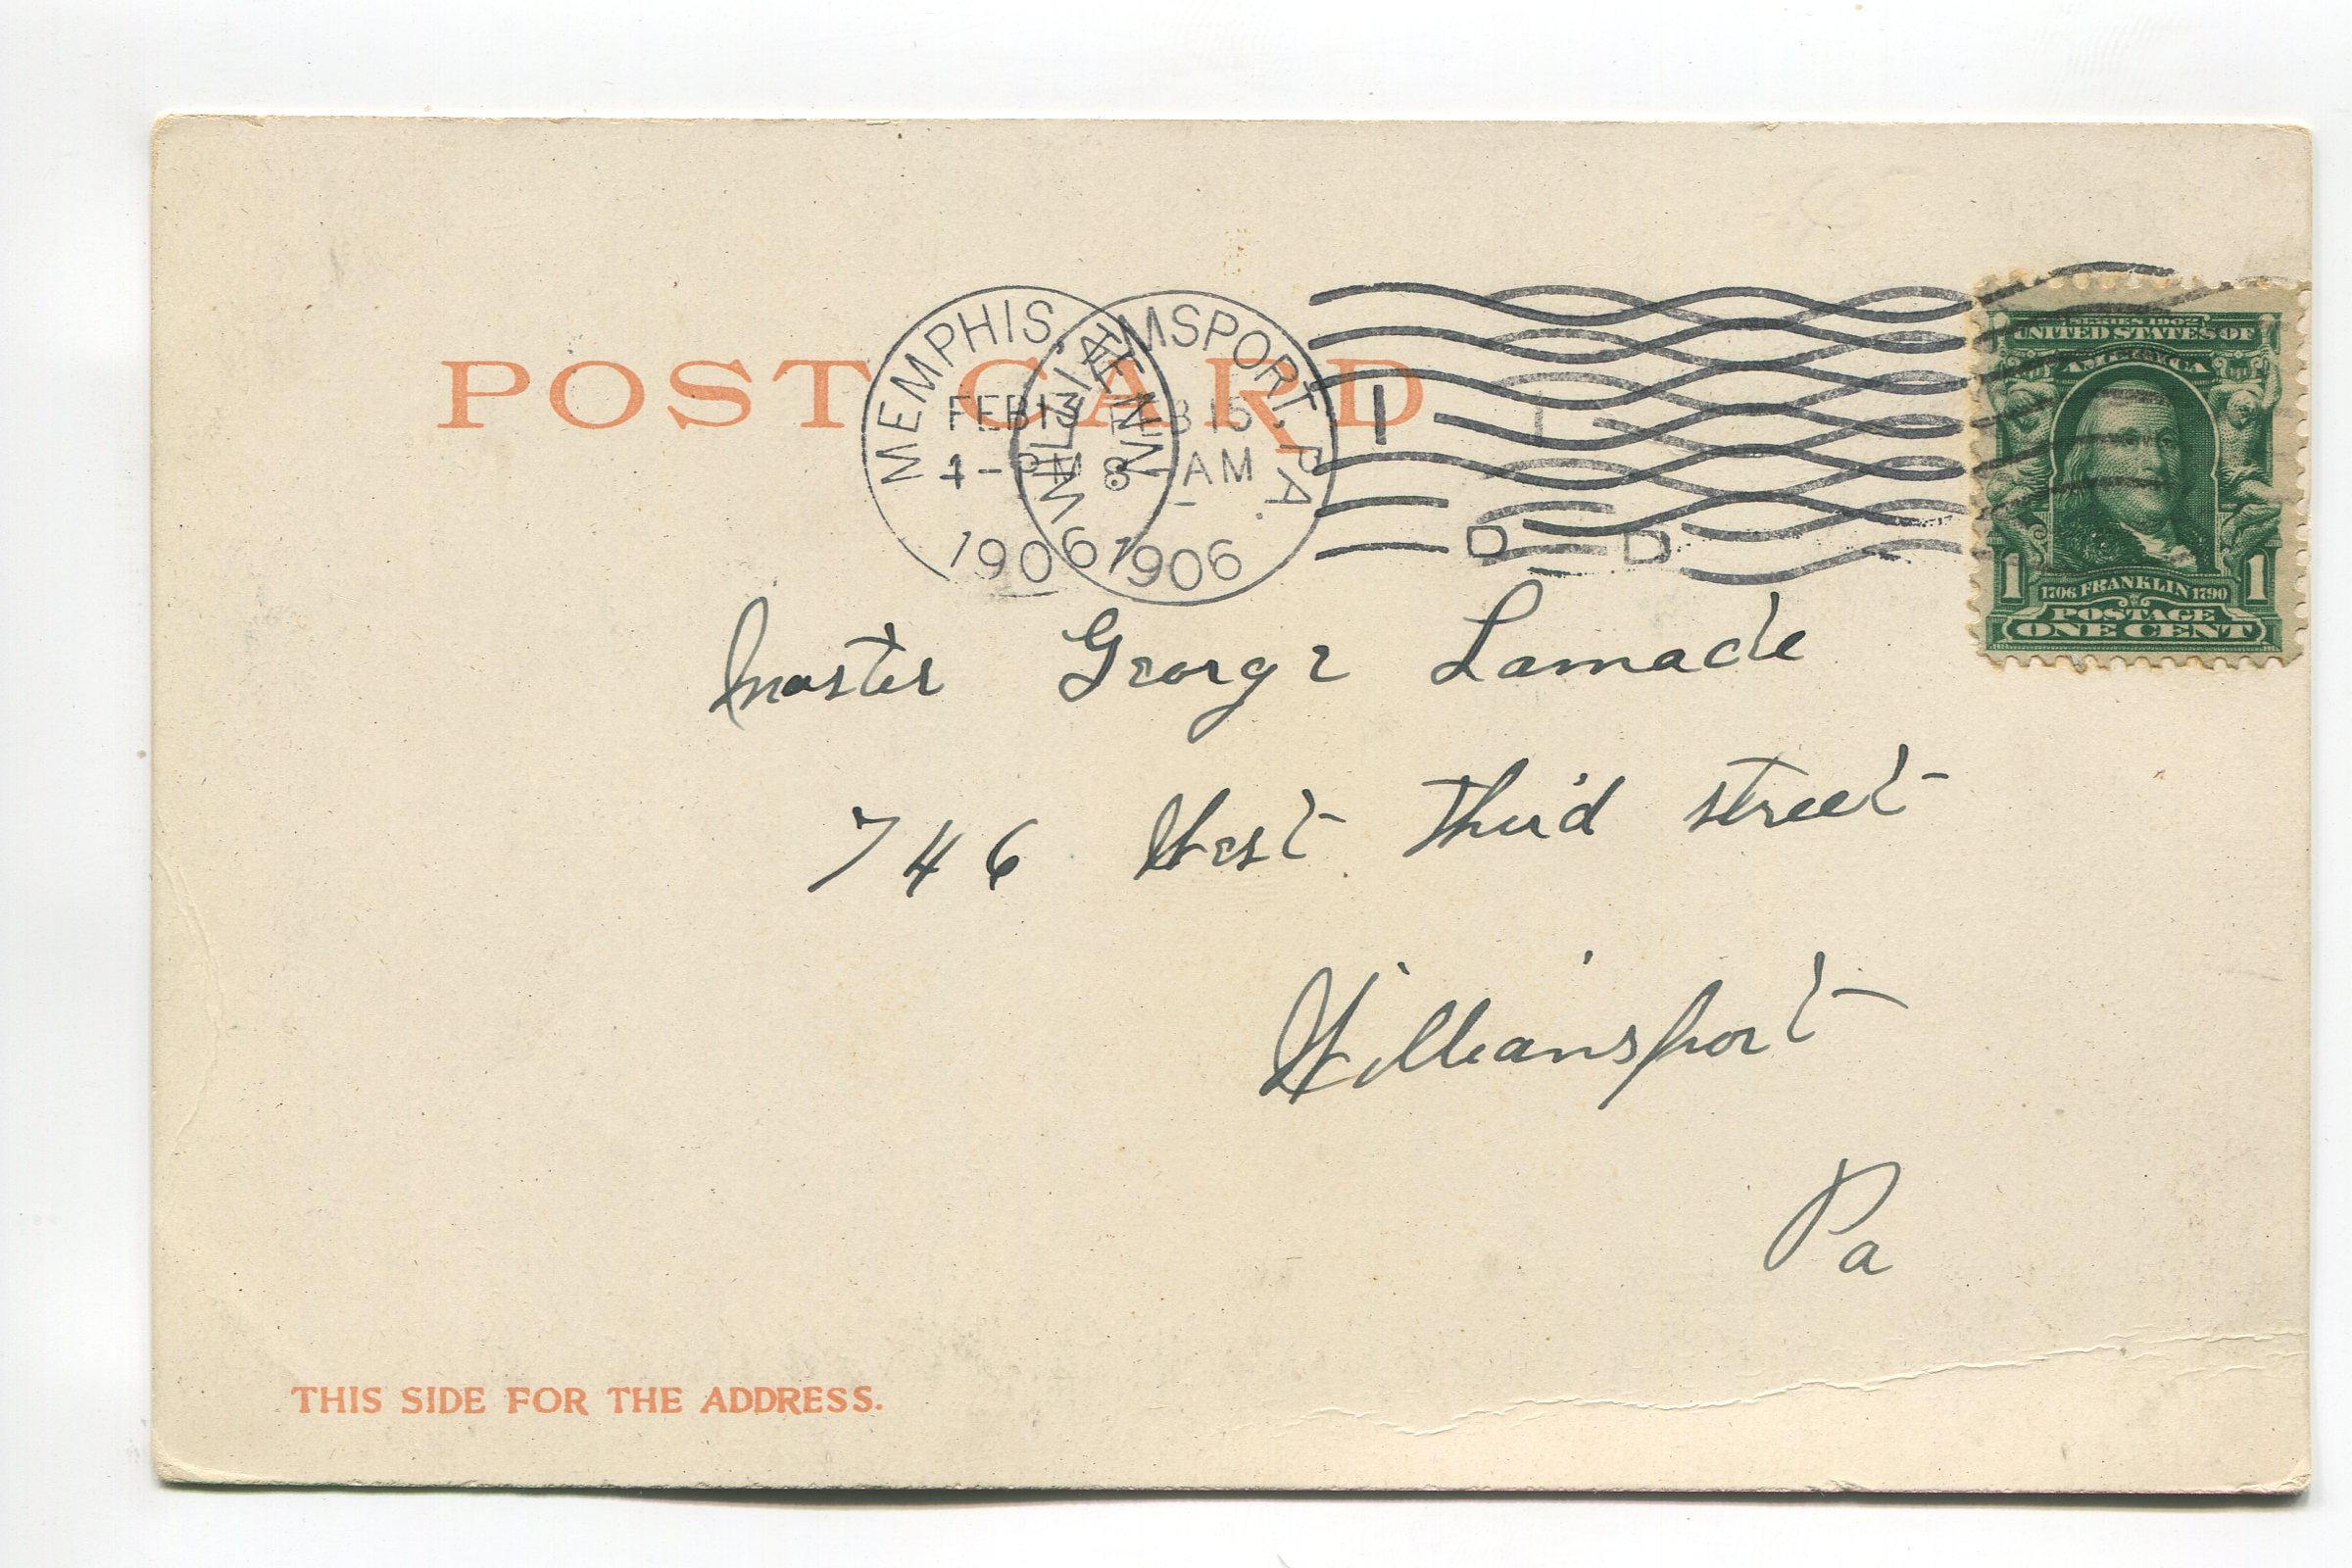 POST CARD
MEMPHIS, TENN.
FEB 13
4-PM
1906
WILLIAMSPORT, PA.
FEB 15
8-AM
1906
I
D
I
D
SERIES 1902
UNITED STATES OF
AMERICA
1706 FRANKLIN 1790
1 1
POSTAGE
ONE CENT
Master George Lamade
746 West Third street
Williamsport
Pa
THIS SIDE FOR THE ADDRESS.